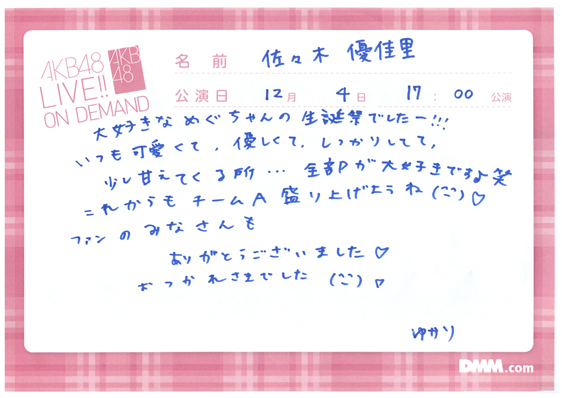 AKB48
LIVE!!
ON DEMAND
AKB
48
名前 佐々木 優佳里
公演日 12月 4日 17:00 公演
大好きな めぐちゃんの 生誕祭でしたー!!!
いつも可愛くて、優しくて、しっかりしてて、
少し甘えてくる所… 全部が大好きですよ笑
これからも チームA 盛り上げようね(´`)♡
ファンの みなさんも
ありがとうございました♡
おつかれさまでした (´`)♡
ゆかり
DMM.com